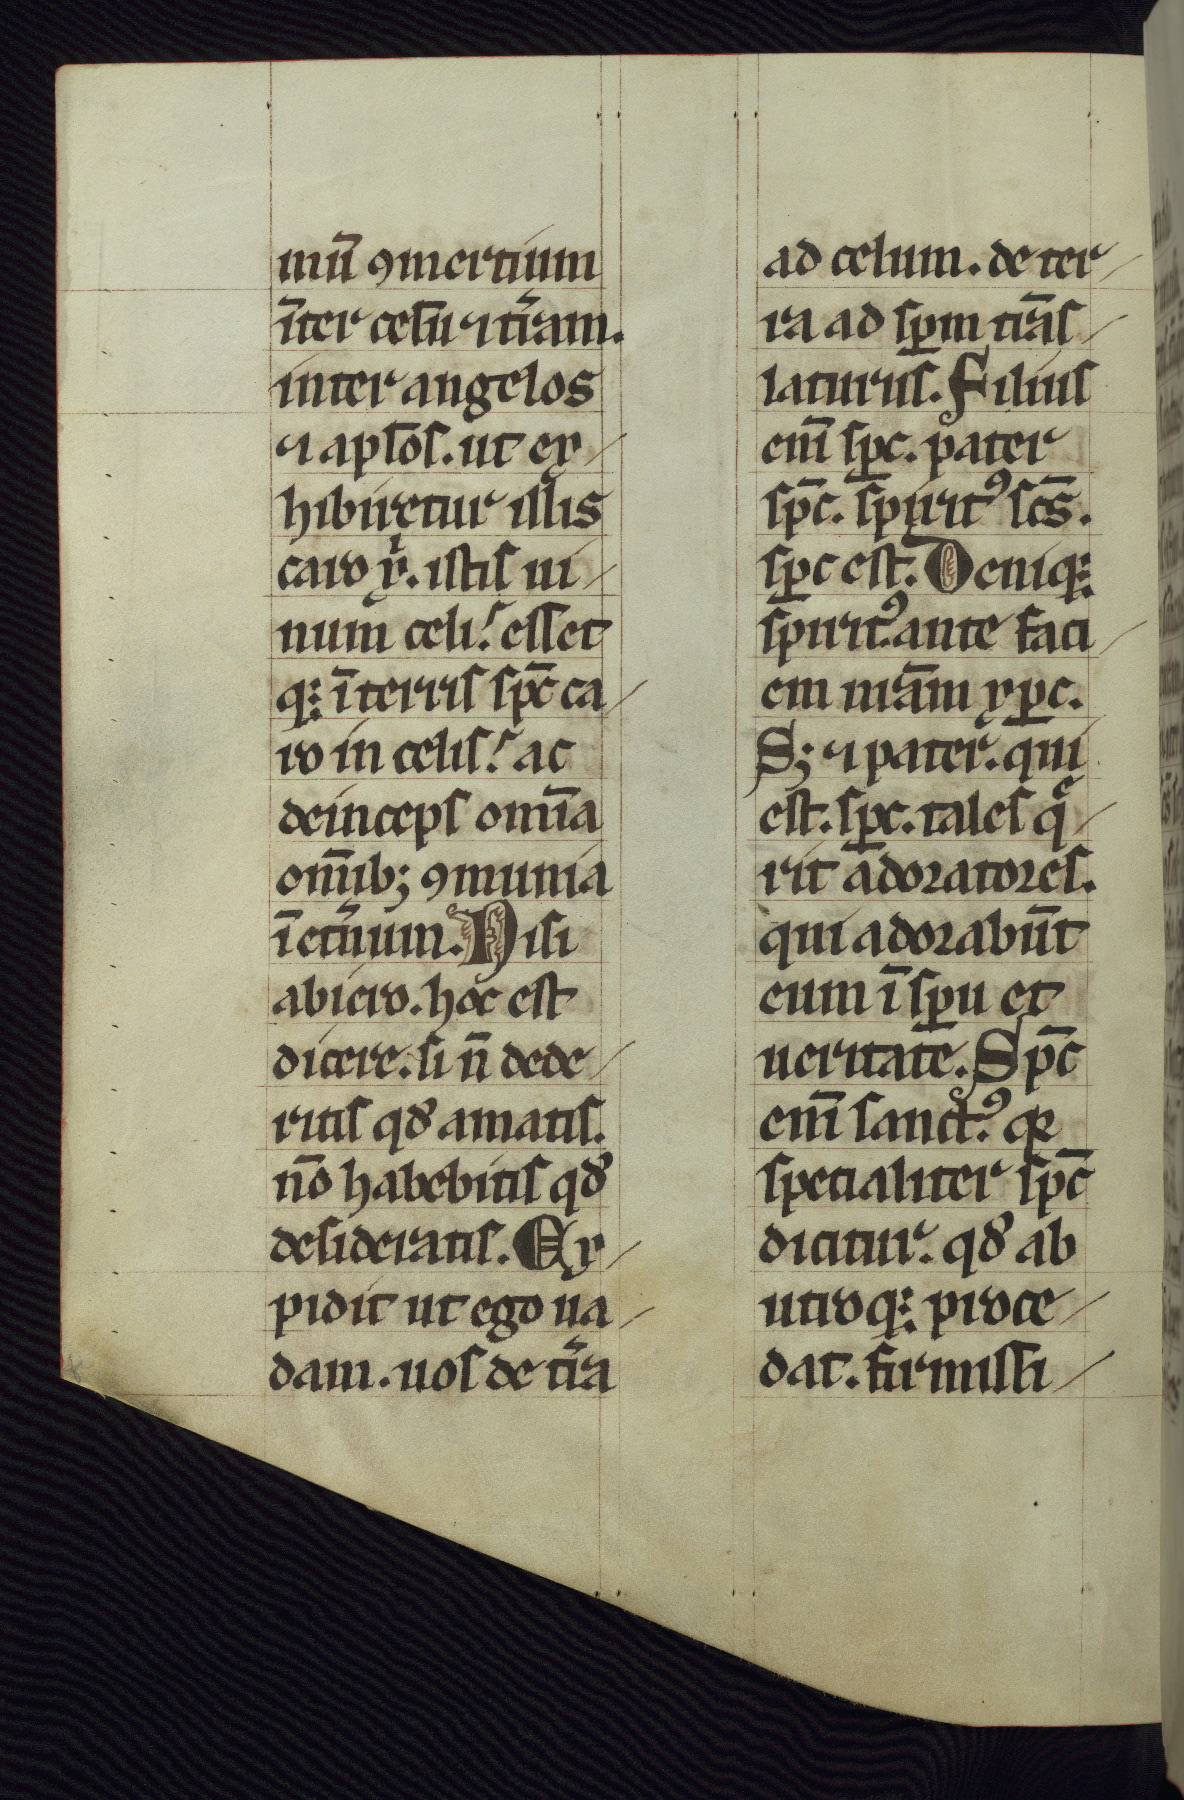 mū ꝯmertium
īter celū ⁊ t̄ram.
inter angelos
⁊ apl̄os. ut ex
hiberetur illis
caro x̄. istis ui
num celi. esset
qꝫ ī terris sp̄c ca
ro in celis. ac
deinceps om̄ia
om̄ibꝫ ꝯmunia
ī et̄num. Nisi
abiero. hoc est
dicere. si n̄ dede
ritis qd̓ amatis.
nō habebitis qd̓
desideratis. Ex
pidit ut ego ua
dam. uos de t̄ra
ad celum. de ter
ra ad sp̄m trās
laturus. Filius
eni̅ sp̄c. pater
sp̄c. spiritꝰ sc̄s.
sp̄c est. Deniqꝫ
spiritꝰ ante faci
em nr̄am xp̄c.
Sꝫ ⁊ pater. qui
est. sp̄c. tales q̄
rit adoratores.
qui adorabūt
eum ī sp̄u et
ueritate. Sp̄c
eni̅ sanctꝰ. qꝛ
specialiter sp̄c
dicitur. qd̓ ab
utroqꝫ proce
dat. firmissi